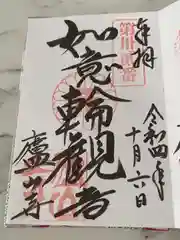 奉拝
第卅弐番
如意輪觀音
令和四年
十月六日
廬山寺